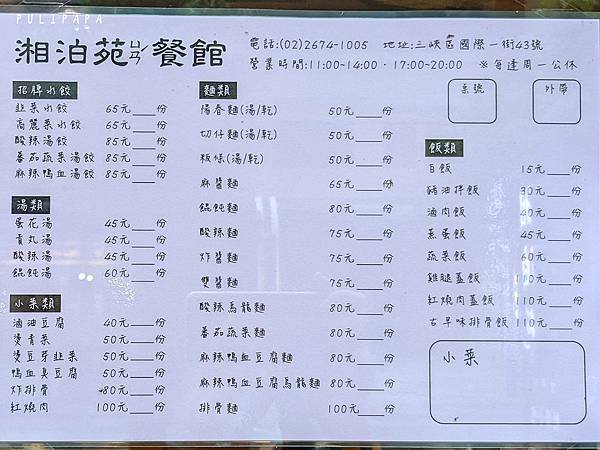 PULIPAPA
湘泊苑ㄩㄢˋ餐館
電話:(02)2674-1005 地址:三峽區國際一街43號
營業時間:11:00~14:00、17:00~20:00 ※每逢周一公休
招牌水餃
韭菜水餃 65元___份
高麗菜水餃 65元___份
酸辣湯餃 85元___份
蕃茄蔬菜湯餃 85元___份
麻辣鴨血湯餃 85元___份
湯類
蛋花湯 45元___份
貢丸湯 45元___份
酸辣湯 45元___份
餛飩湯 60元___份
小菜類
滷油豆腐 40元___份
燙青菜 50元___份
燙豆芽韭菜 50元___份
鴨血臭豆腐 50元___份
炸排骨 80元___份
紅燒肉 100元___份
麵類
陽春麵(湯/乾) 50元___份
切仔麵(湯/乾) 50元___份
粄條(湯/乾) 50元___份
麻醬麵 65元___份
餛飩麵 80元___份
酸辣麵 75元___份
炸醬麵 75元___份
雙醬麵 75元___份
酸辣烏龍麵 80元___份
蕃茄蔬菜麵 80元___份
麻辣鴨血豆腐麵 80元___份
麻辣鴨血豆腐烏龍麵 80元___份
排骨麵 100元___份
桌號
外帶
飯類
白飯 15元___份
豬油拌飯 30元___份
滷肉飯 40元___份
蒸蛋飯 45元___份
蔬菜飯 60元___份
雞腿蓋飯 110元___份
紅燒肉蓋飯 110元___份
古早味排骨飯 110元___份
小菜